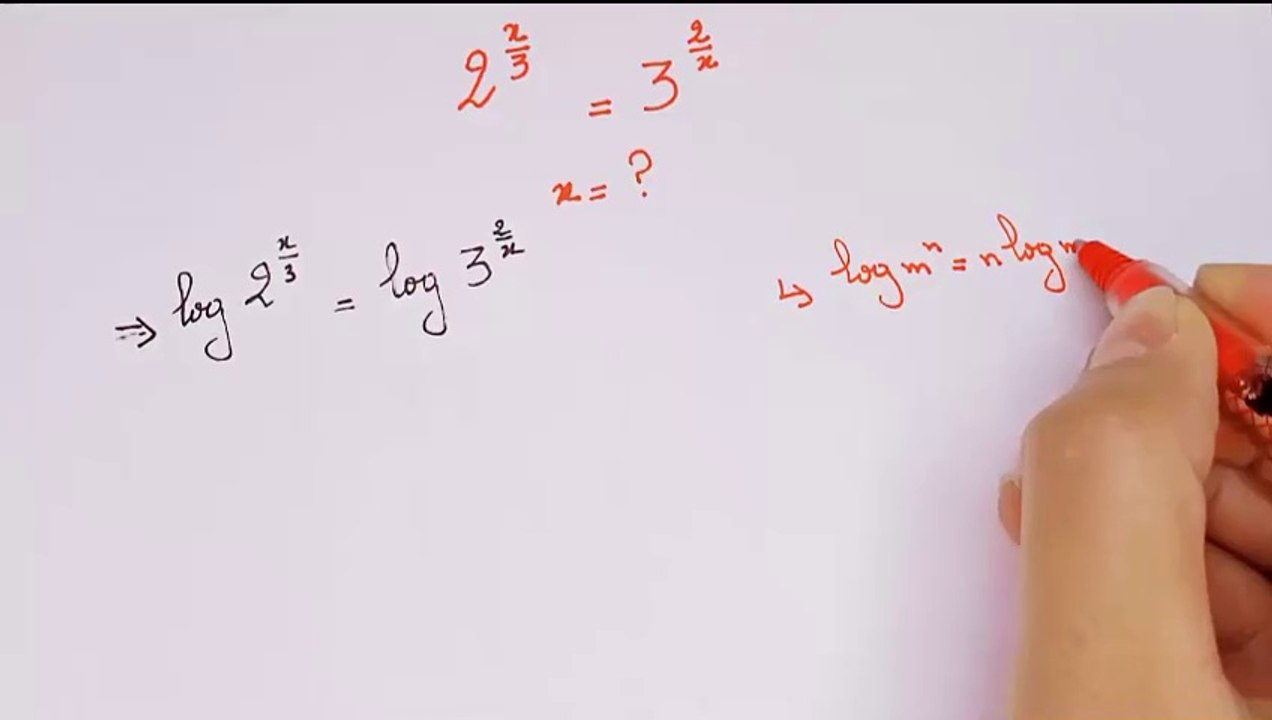 2^{x/3} = 3^{2/x}
x = ?
⇒ log 2^{x/3} = log 3^{2/x}
↳ log m^n = n log m